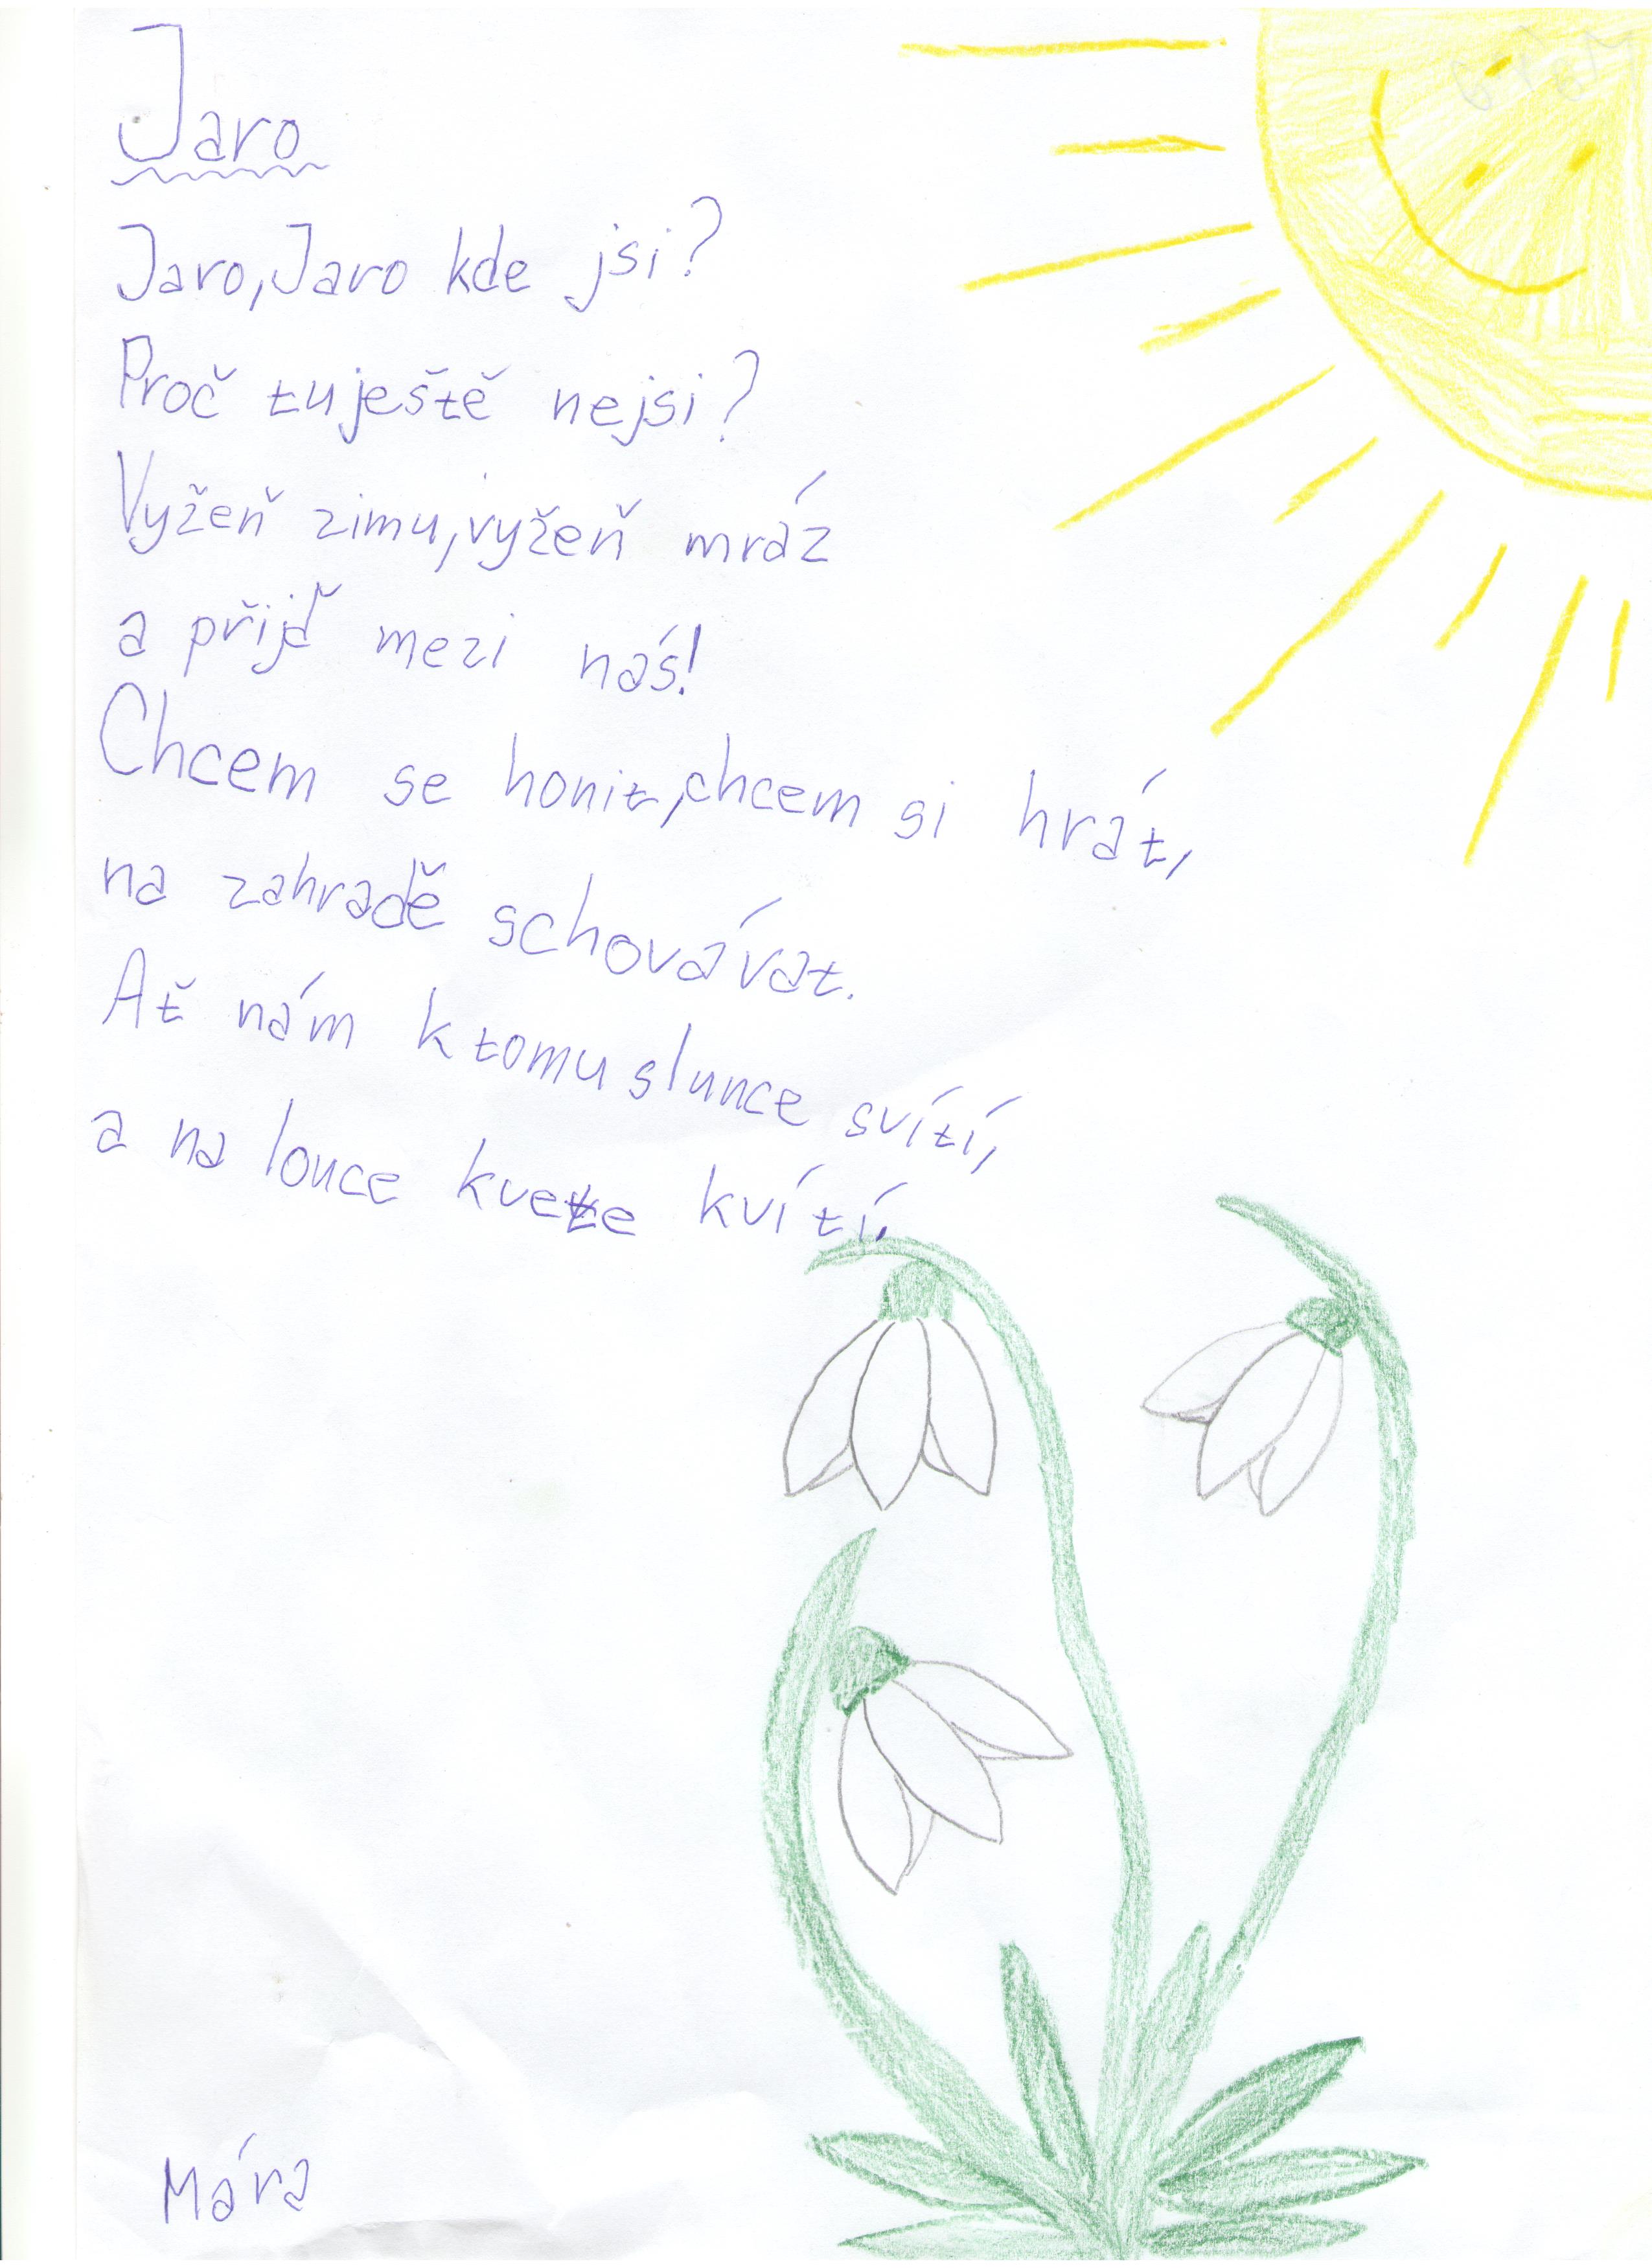 Jaro
Jaro, Jaro kde jsi?
Proč tu ještě nejsi?
Vyžeň zimu, vyžeň mráz
a přijď mezi nás!
Chcem se honit, chcem si hrát,
na zahradě schovávat.
Ať nám k tomu slunce svítí,
a na louce kvete kvítí.
Mára